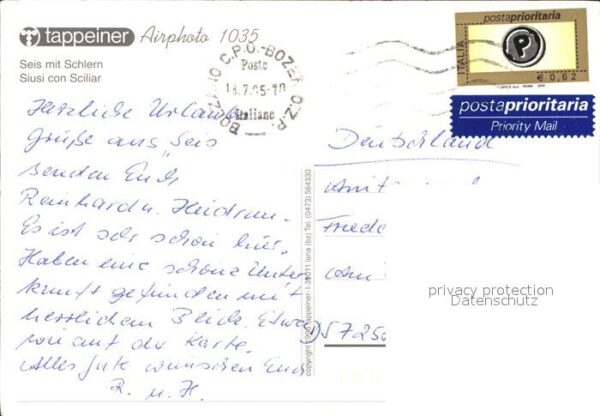 tappeiner Airphoto 1035
Seis mit Schlern
Siusi con Sciliar
BOLZANO C.P.O.-BOZEN O.Z.P.
Poste
18.7.05-18
Italiane
ITALIA
postaprioritaria
P
€ 0,62
postaprioritaria
Priority Mail
Herzliche Urlaubs
grüße aus Seis
senden Euch
Reinhard u. Heidrun.
Es ist sehr schön hier.
Haben eine schöne Unter
kunft gefunden mit
herrlichem Blick. Etwa
wie auf der Karte.
Alles Gute wünschen Euch
R. u. H.
copyright tappeiner I-39011 lana (bz) Tel. (0473) 564330
Deutschland
Friede
5725
privacy protection
Datenschutz